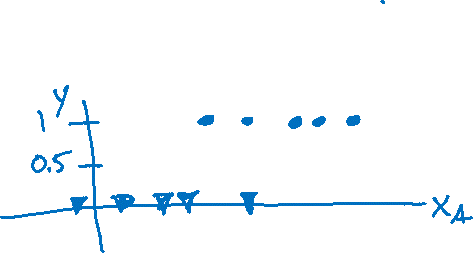 y
1
0.5
XA